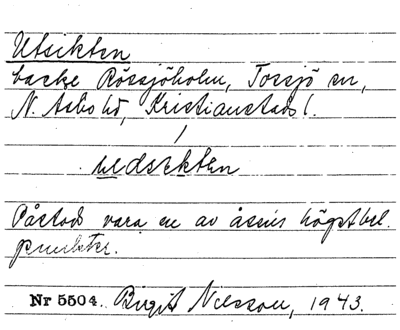 Utsikten
backe Rössjöholm, Tossjö sn,
N. Åsbo hd, Kristianstads l.
/
uedsekten
Påstods vara en av åsens högst bel.
punkter.
Nr 5504. Birgit Nilsson, 1943.